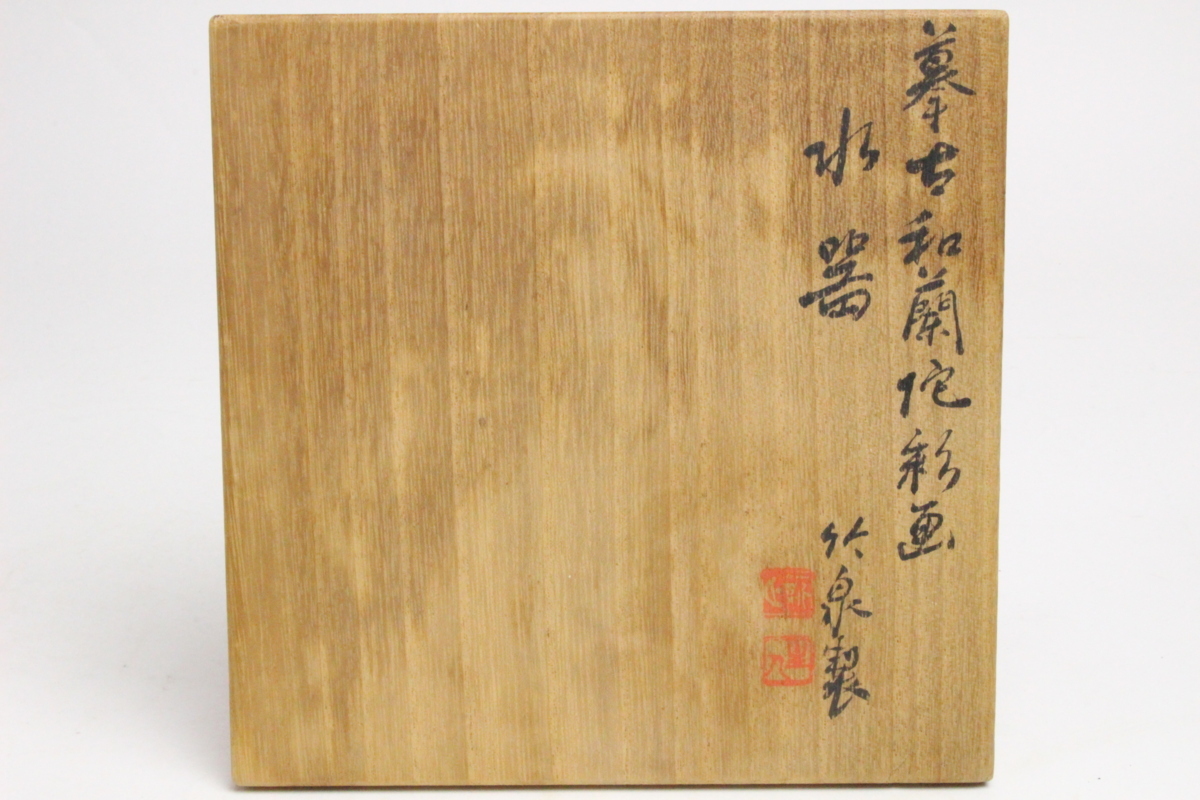 摹古和蘭陀彩画
水器
竹泉製